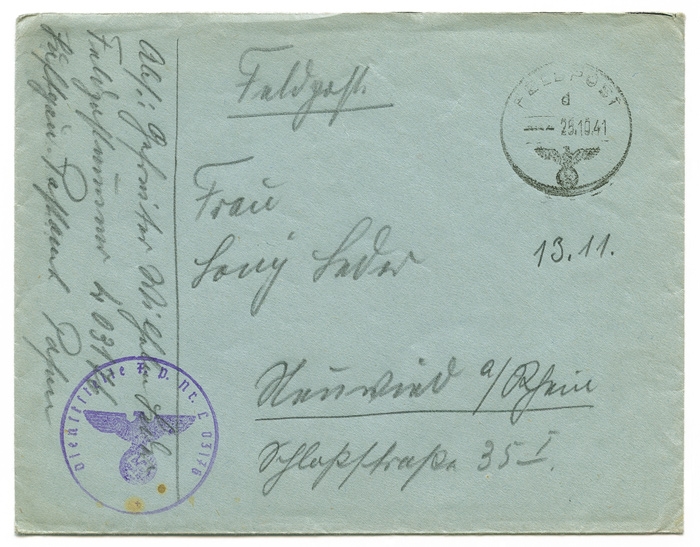 Feldpost.
FELDPOST
d
25.10.41
13.11.
Frau
Leder
Neuwied a/Rhein
Schloßstraße 35 I.
Abs: Gefreiter Wilhelm Leder
Feldpostnummer L 03176
Luftgau-Postamt Posen
Dienststelle F.P. Nr. L 03176